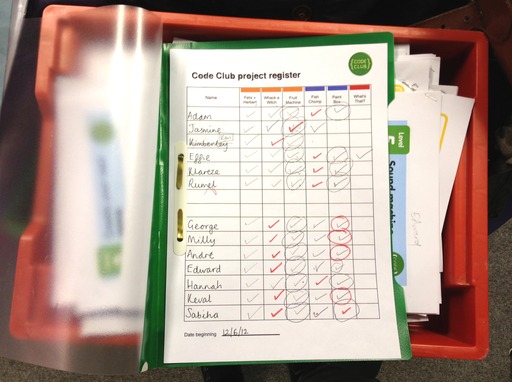 CODE
CLUB
Code Club project register
Name Felix's Herbert? Whack a Witch Fruit Machine Fish Chomp Paint Box What's That?
Adam
Jasmine
Kimberley
Effie
Klareze
Rumel
George
Milly
Andre
Edward
Hannah
Keval
Sabiha
Date beginning 12/6/12
Level
Sound machine
Edward